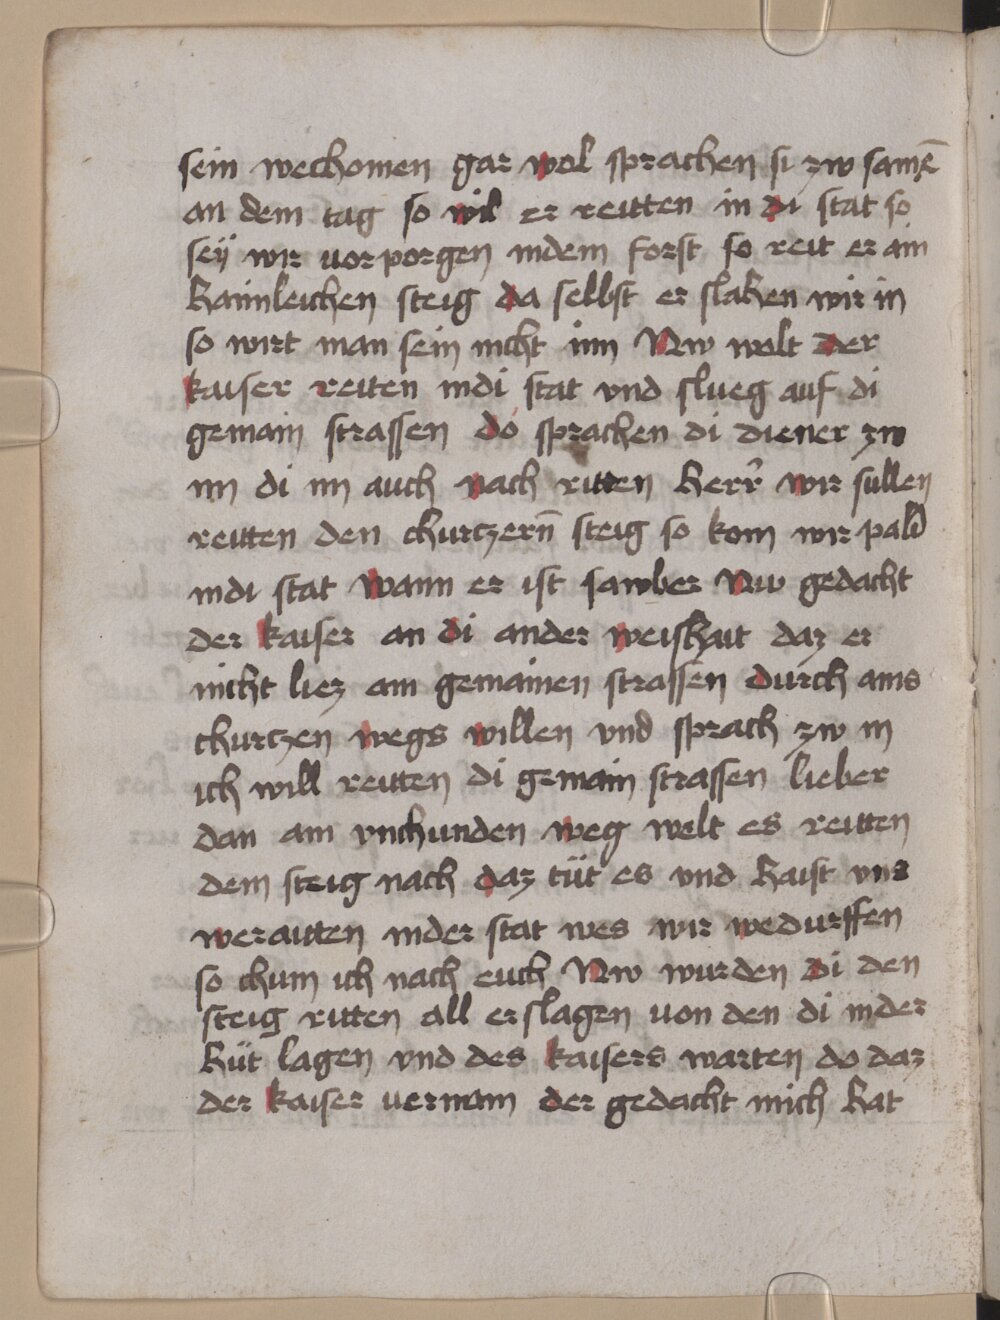 sein wechomen gar wol sprachen si zw samē
an dem tag so wil er reitten in di stat so
seÿ wir vorporgen indem forst so reit er ain
hainleichen steig da selbst er slahen wir in
so wirt man sein nicht inn Nw wolt der
kaiser reiten indi stat vnd slueg auf di
gemain strassen do sprachen di diener zw
im di im auch nach ritten herr wir sullen
reitten den churczern̄ steig so kom wir pald
indi stat Wann er ist sawber Nw gedacht
der kaiser an di ander weishait daz er
nicht liez ain gemainen strassen durch ains
churczen wegs willen vnd sprach zw in
ich will reitten di gemain strassen lieber
dan ain vnchunden weg welt es reitten
dem steig nach daz tüt es vnd haist vns
weraitten inder stat wes wir wedurffen
so chum ich nach euch Nw wurden di den
steig ritten all erslagen von den di inder
hüt lagen vnd des kaisers warten do daz
der kaiser vernam der gedacht mich hat